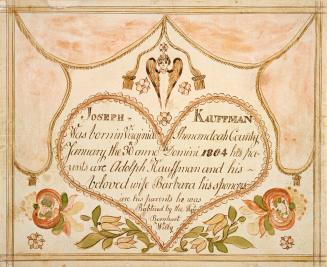 JOSEPH - KAUFFMAN
Was born in Virginia Shenandoah County
January, the 30 anno Domini 1804 his pa-
rents are Adolph Kauffman and his
beloved wife Barbara his sponsors
are his parents he was
Babtized by the Rev.
Bernhart
Willy